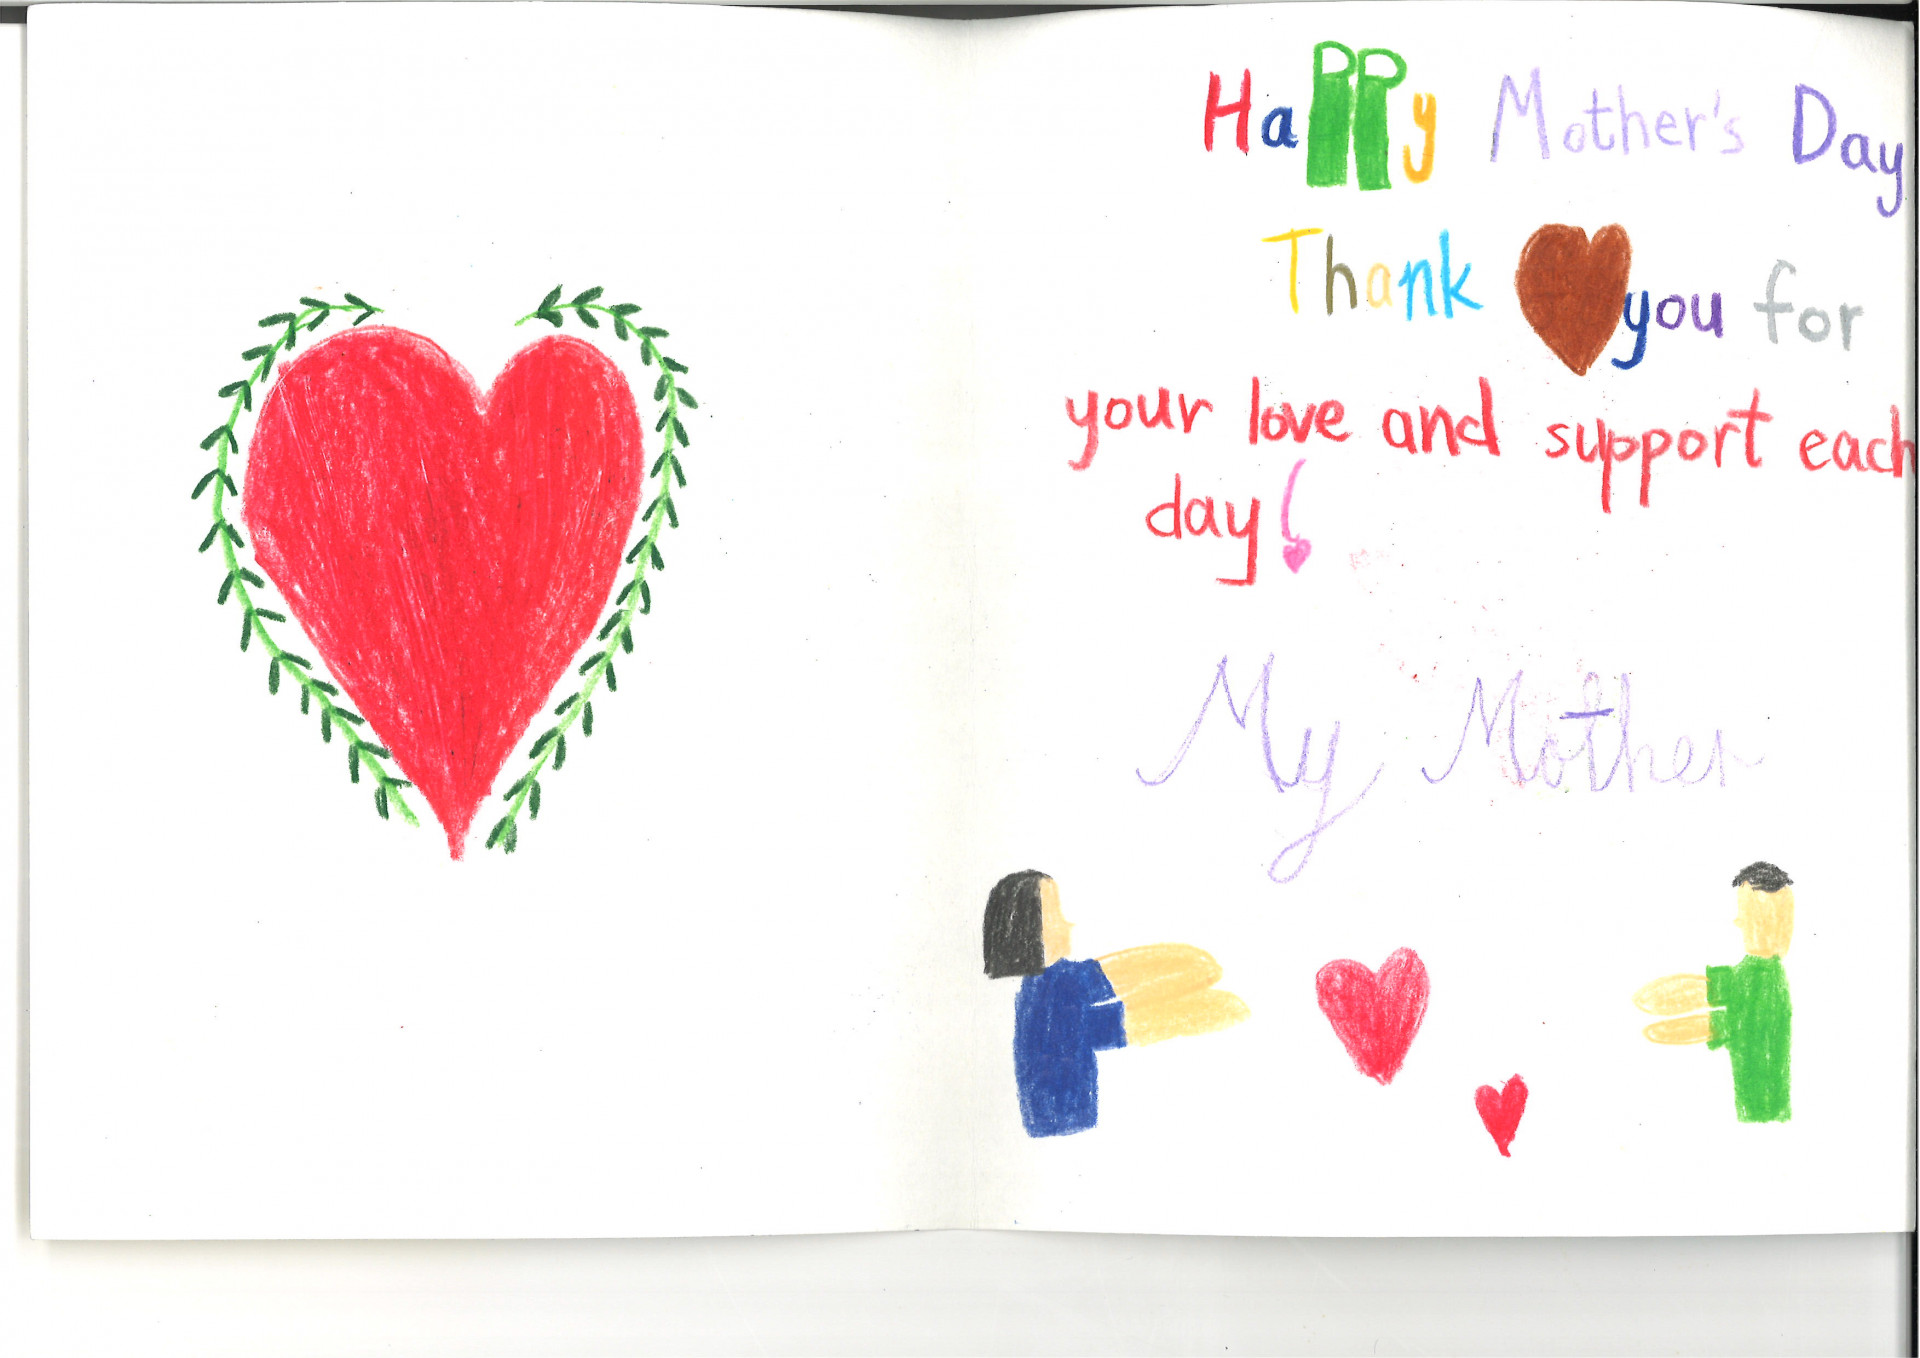 Happy Mother's Day
Thank you for
your love and support each
day!
My Mother